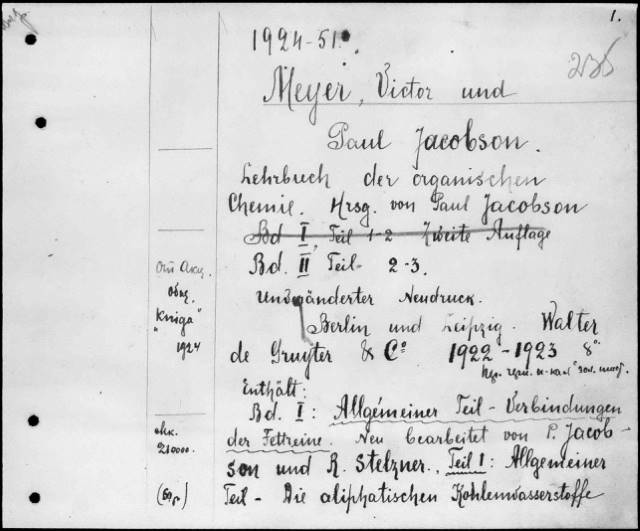 1.
1924-51.
235
Meyer, Victor und
Paul Jacobson.
Lehrbuch der organischen
Chemie. Hrsg. von Paul Jacobson
Bd I, Teil 1-2 Zweite Auflage
Bd. II Teil 2-3.
Unveränderter Neudruck.
Berlin und Leipzig. Walter
de Gruyter & Co 1922-1923 8°
Enthält:
Bd. I: Allgemeiner Teil - Verbindungen
der Fettreihe. Neu bearbeitet von P. Jacob-
son und R. Stelzner., Teil 1: Allgemeiner
Teil - Die aliphatischen Kohlenwasserstoffe
От Акц.
общ.
"Kniga"
1924
210000.